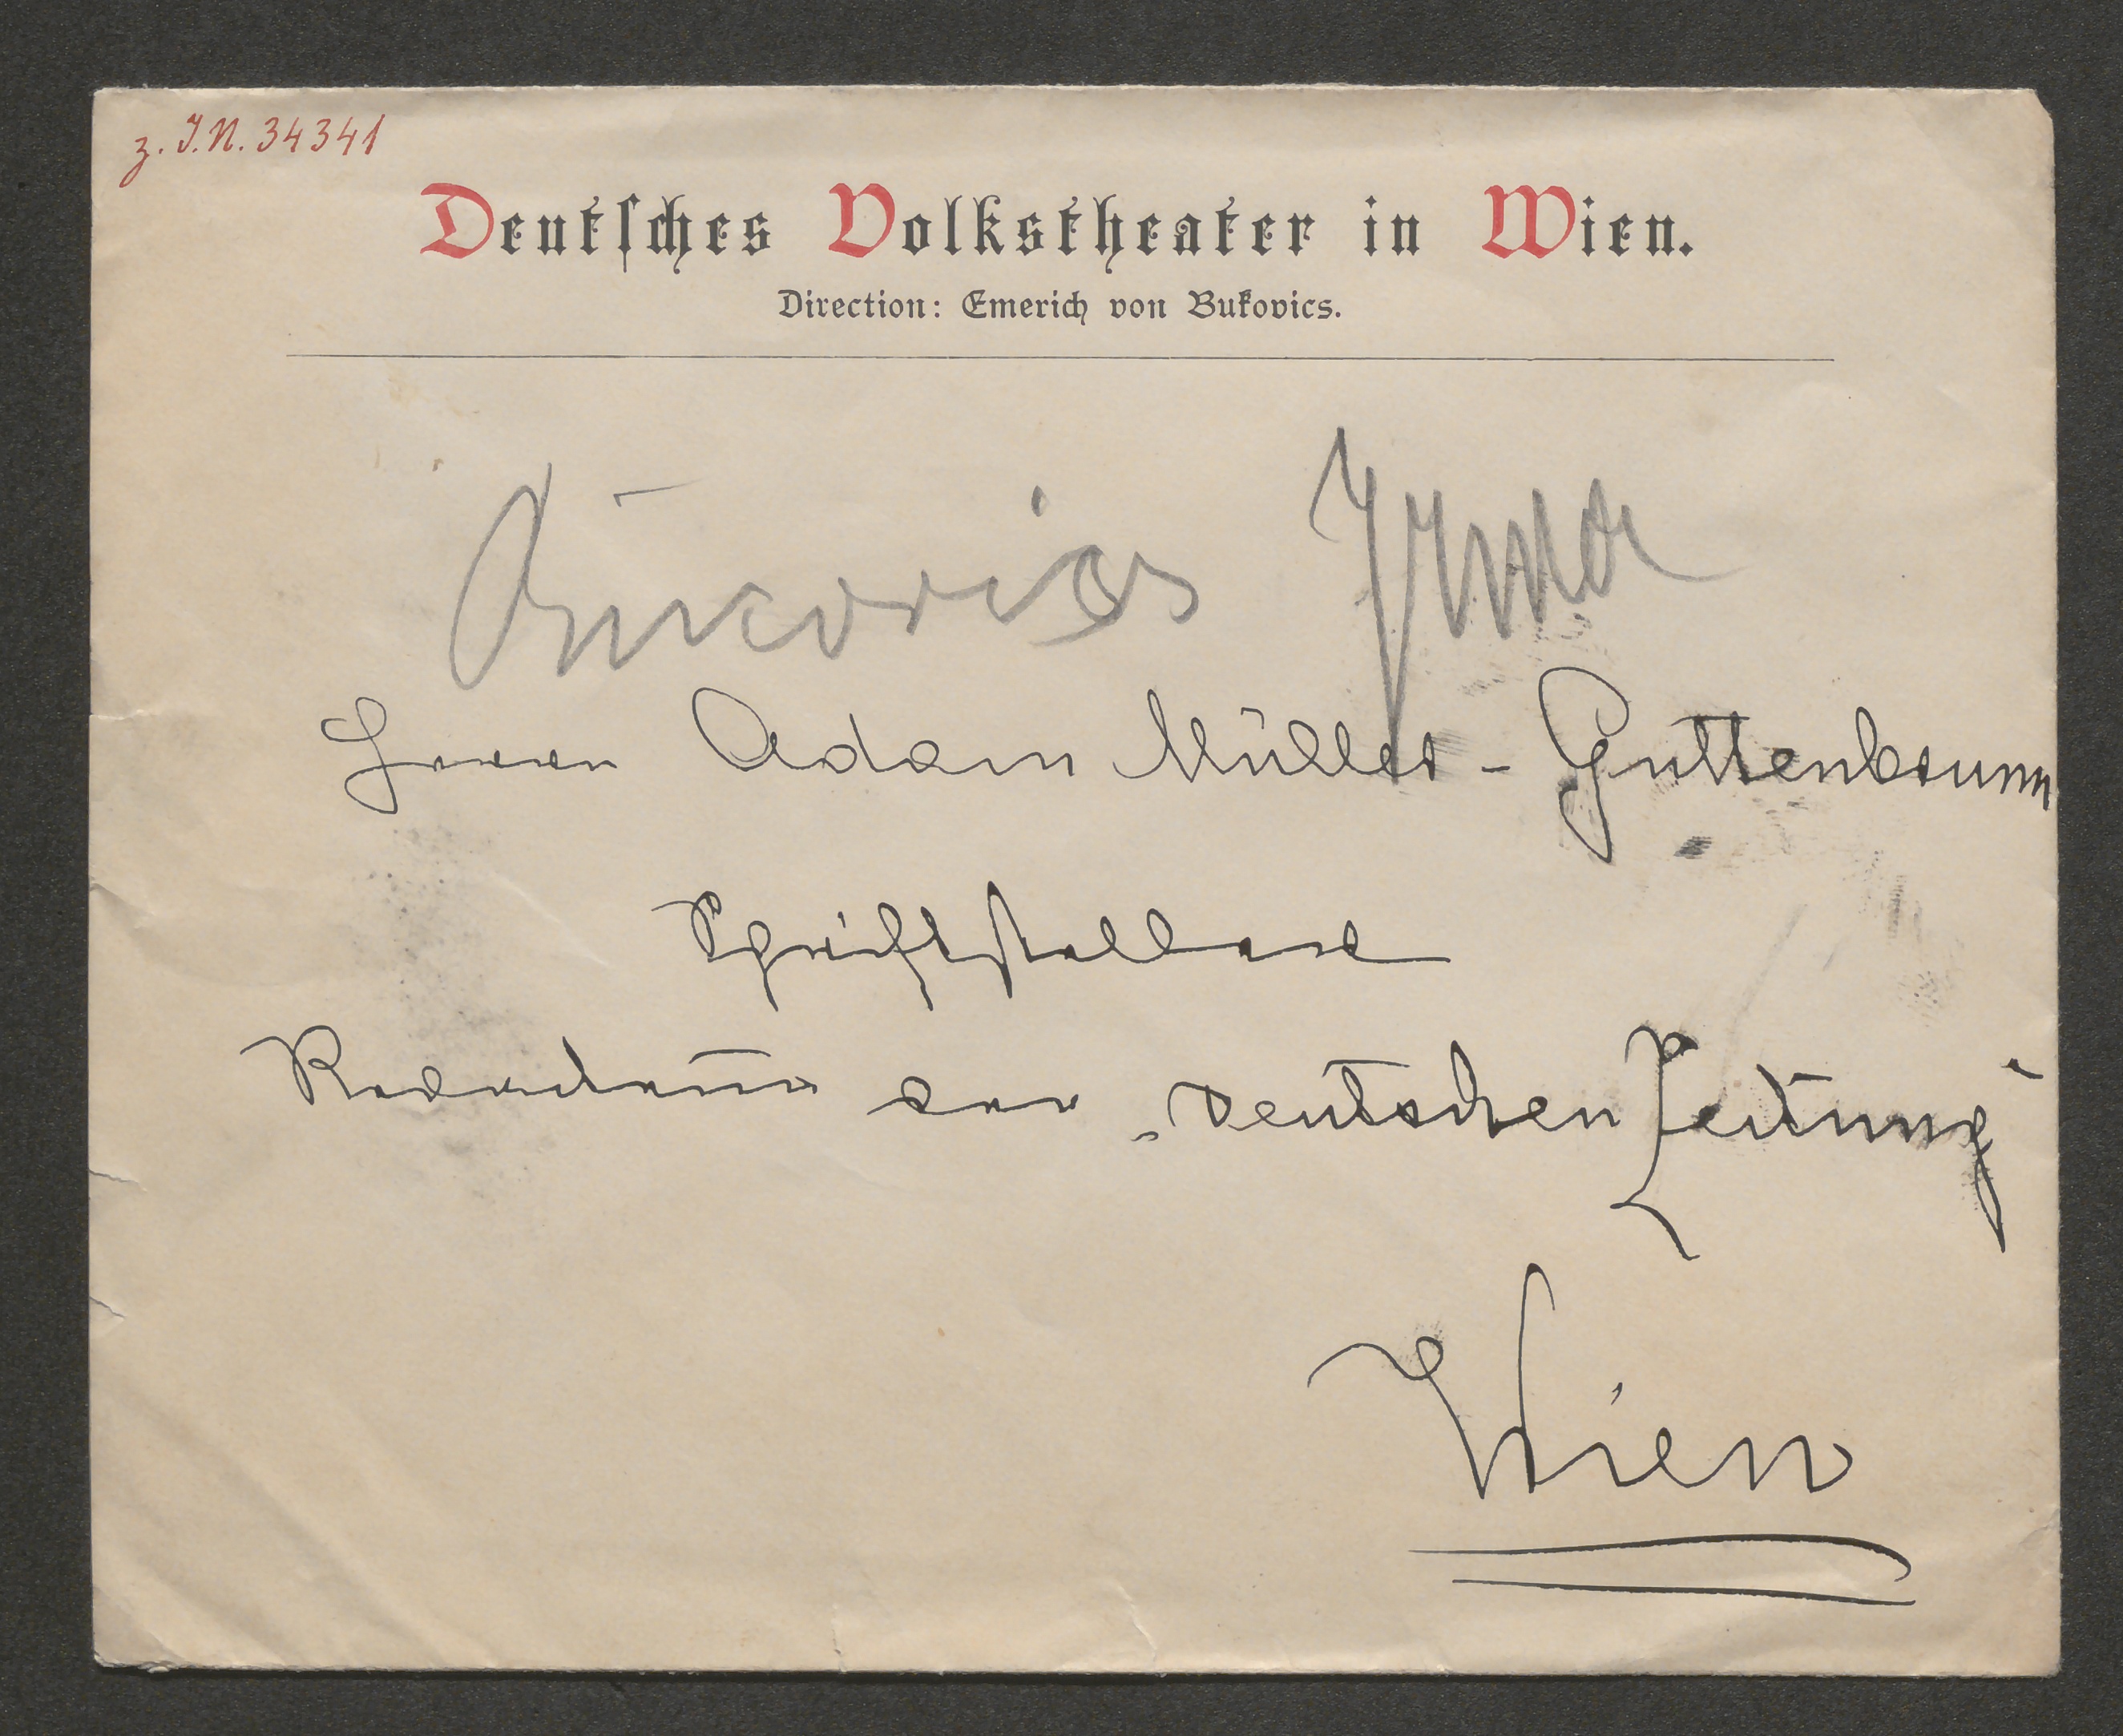 z. I.N. 34341
Deutsches Volkstheater in Wien.
Direction: Emerich von Bukovics.
Bukovics Irma
Herrn Adam Müller-Guttenbrunn
Schriftsteller
Redacteur der „Deutschen Zeitung“
Wien